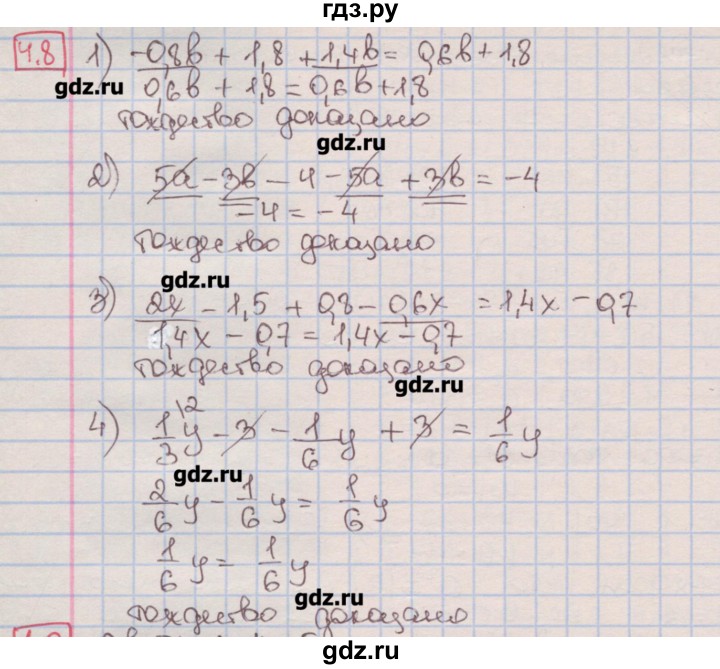 гдз.ру
4.8 1) -0,8в + 1,8 + 1,4в = 0,6в + 1,8
0,6в + 1,8 = 0,6в + 1,8
gdz.ru
тождество доказано
gdz.ru
2) 5а - 3в - 4 - 5а + 3в = -4
-4 = -4
тождество доказано
gdz.ru
3) 2х - 1,5 + 0,8 - 0,6х = 1,4х - 0,7
1,4х - 0,7 = 1,4х - 0,7
тождество доказано
gdz.ru
4) 1/3 у \2 - 3 - 1/6 у + 3 = 1/6 у
gdz.ru
2/6 у - 1/6 у = 1/6 у
1/6 у = 1/6 у
gdz.ru
тождество доказано
gdz.ru